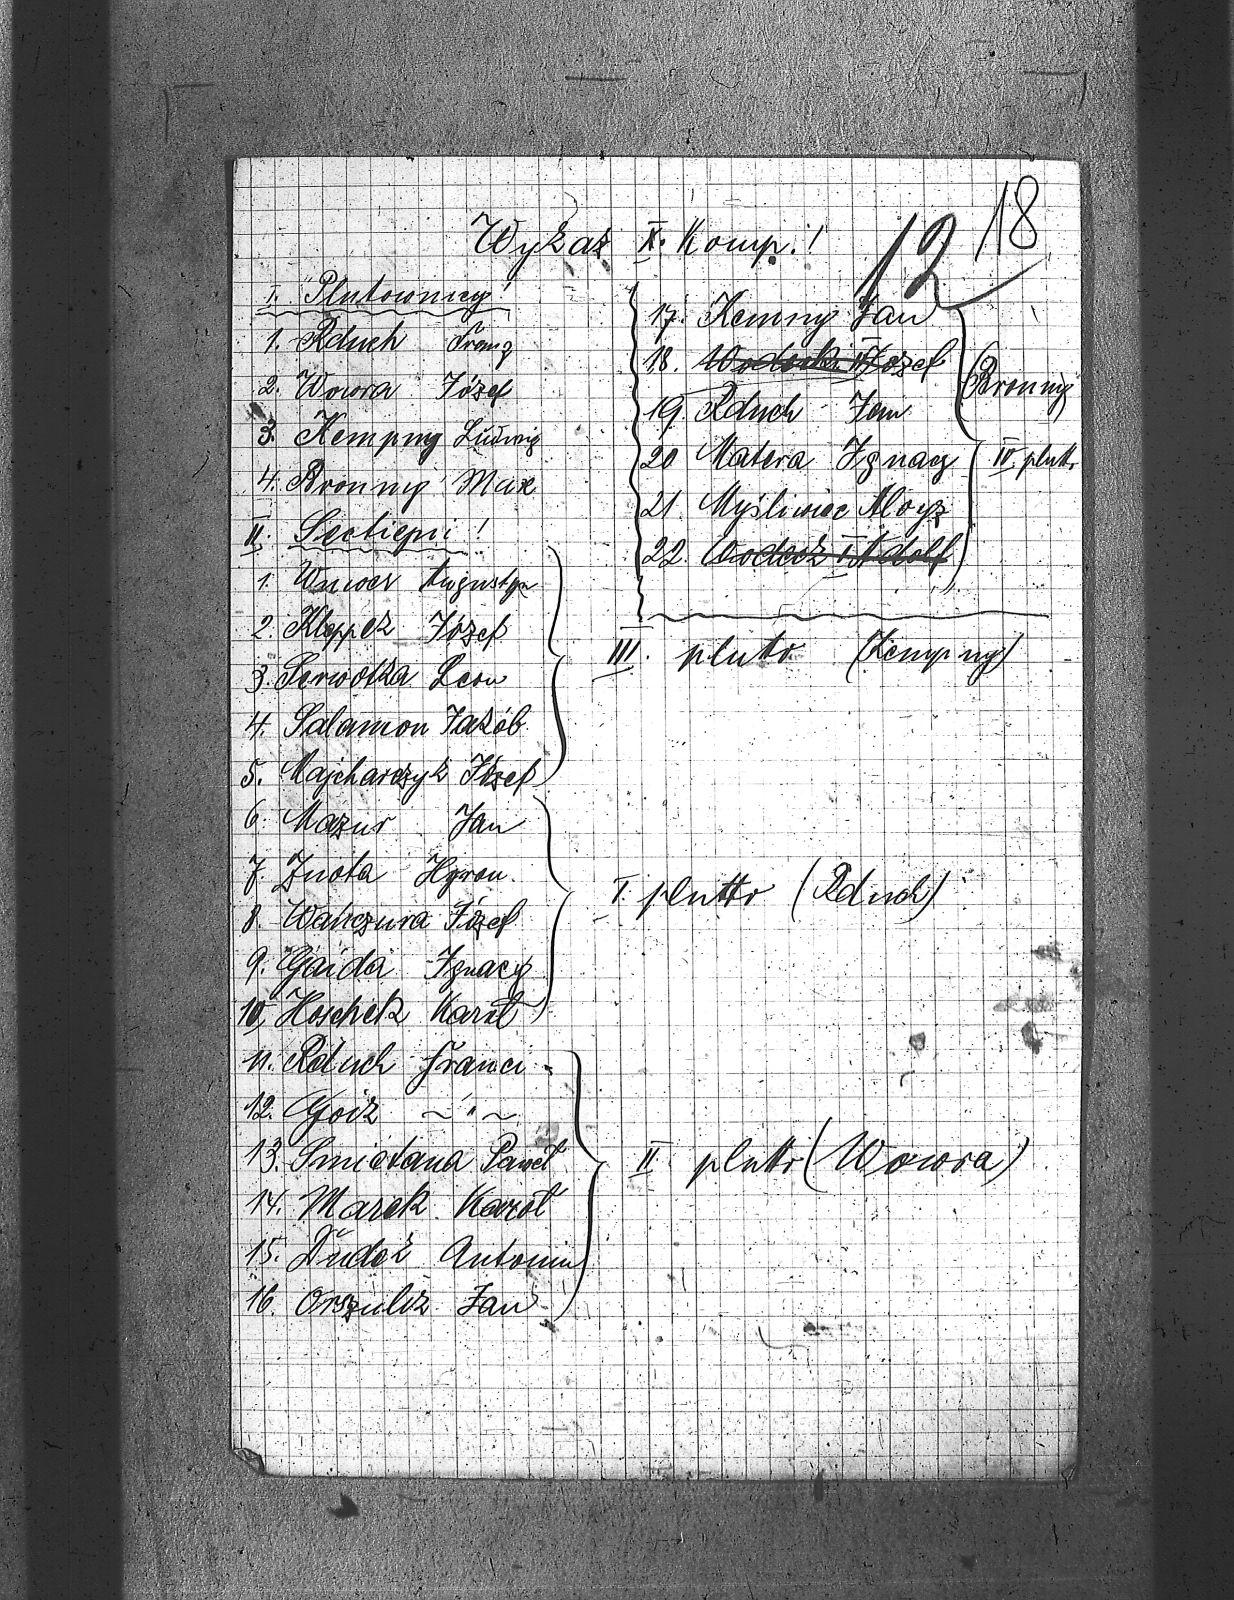 18
12
Wykaz X. Komp.!
I. Plutownicy!
1. Rduch Franz
2. Wowra Józef
3. Kempny Ludwig
4. Bronny Max
II. Sectieni!
1. Augustyn
2. Kleppek Józef
3. Serwotka Leon
4. Salamon Jakób
5. Majcharczyk Józef
6. Mazur Jan
7. Znota Hyron.
8. Wańczura Józef
9. Gaida Ignacy
10. Hoschek Karol
11. Rduch Franci.
12. Goik ~"~
13. Smietana Paweł
14. Marek Karol
15. Dudek Antonin
16. Orszulik Jan
17. Kemny Jan
18. Wodecki II Józef
19. Rduch Jan
20 Matera Ignacy
21. Myśliwiec Aloyz
22. Wodeck I Adolf
(Bronny)
IV. plutto
III. plutto (Kempny)
I. plutto (Rduch)
II plutto (Wowra)